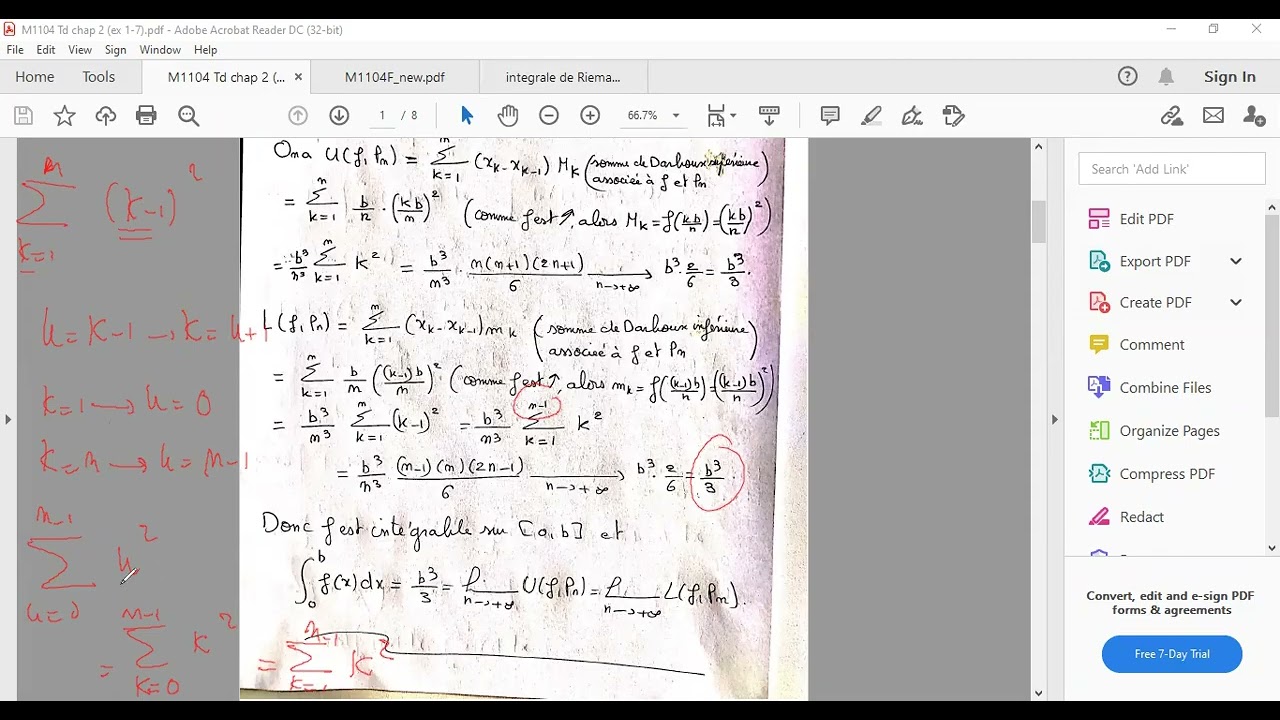 M1104 Td chap 2 (ex 1-7).pdf - Adobe Acrobat Reader DC (32-bit)
File Edit View Sign Window Help
Home Tools M1104 Td chap 2 (... × M1104F_new.pdf integrale de Riema... Sign In
1 / 8 66.7%
Ona U(f,Pn) = ∑_{k=1}^{n} (x_k - x_{k-1}) M_k (somme de Darboux
associée à f et Pn)
= ∑_{k=1}^{n} b/n · (kb/n)² (comme f est ↗, alors M_k = f(kb/n) = (kb/n)²)
= b³/n³ ∑_{k=1}^{n} k² = b³/n³ · n(n+1)(2n+1)/6 → n→+∞ b³·2/6 = b³/3.
L(f,Pn) = ∑_{k=1}^{n} (x_k - x_{k-1}) m_k (somme de Darboux inférieure
associée à f et Pn)
= ∑_{k=1}^{n} b/n ((k-1)b/n)² (comme f est ↗, alors m_k = f((k-1)b/n) = ((k-1)b/n)²)
= b³/n³ ∑_{k=1}^{n} (k-1)² = b³/n³ ∑_{k=1}^{n-1} k²
= b³/n³ (n-1)(n)(2n-1)/6 → n→+∞ b³·2/6 = b³/3.
Donc f est intégrable sur [0,b] et
∫_0^b f(x)dx = b³/3 = n→+∞ U(f,Pn) = n→+∞ L(f,Pn).
∑_{k=1}^{n} (k-1)²
u = k-1 → k = u+1
k=1 → u=0
k=n → u=n-1
∑_{u=0}^{n-1} u²
= ∑_{k=0}^{n-1} k²
= ∑_{k=1}^{n-1} k²
Search 'Add Link'
Edit PDF
Export PDF
Create PDF
Comment
Combine Files
Organize Pages
Compress PDF
Redact
Convert, edit and e-sign PDF
forms & agreements
Free 7-Day Trial